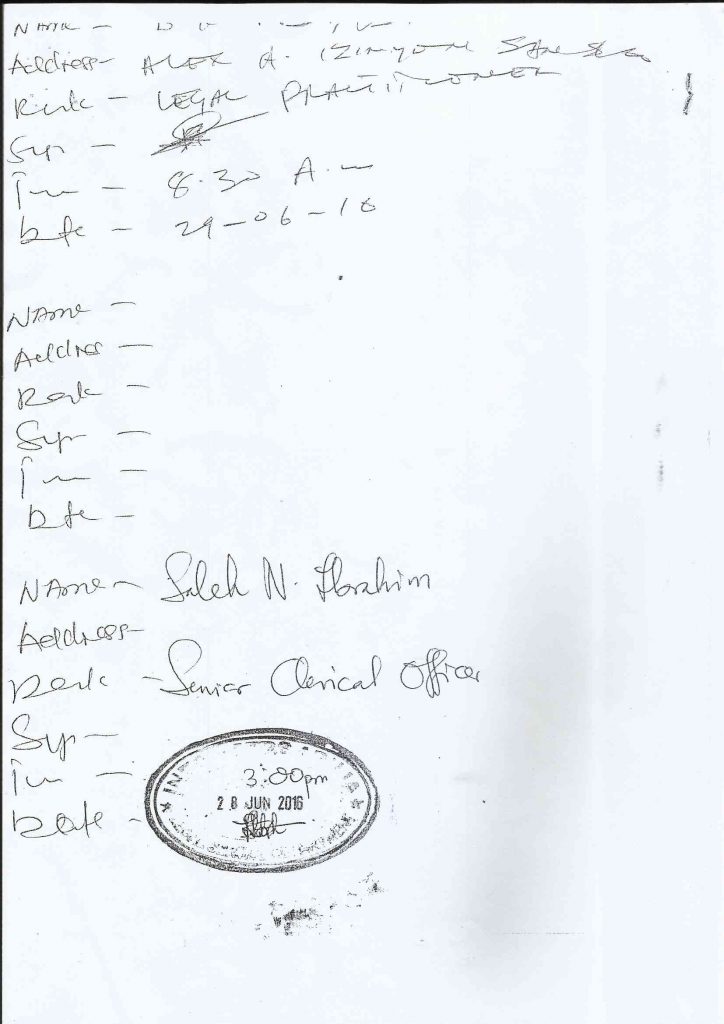 Name -
Address - ALEX A. IZINYON SAN & Co
Rank - LEGAL PRACTITIONER
Sign -
Time - 8.30 A.m
Date - 29-06-16
Name -
Address -
Rank -
Sign -
Time -
Date -
Name - Saleh N. Ibrahim
Address -
Rank - Senior Clerical Officer
Sign -
Time - 3:00pm
28 JUN 2016
Date -